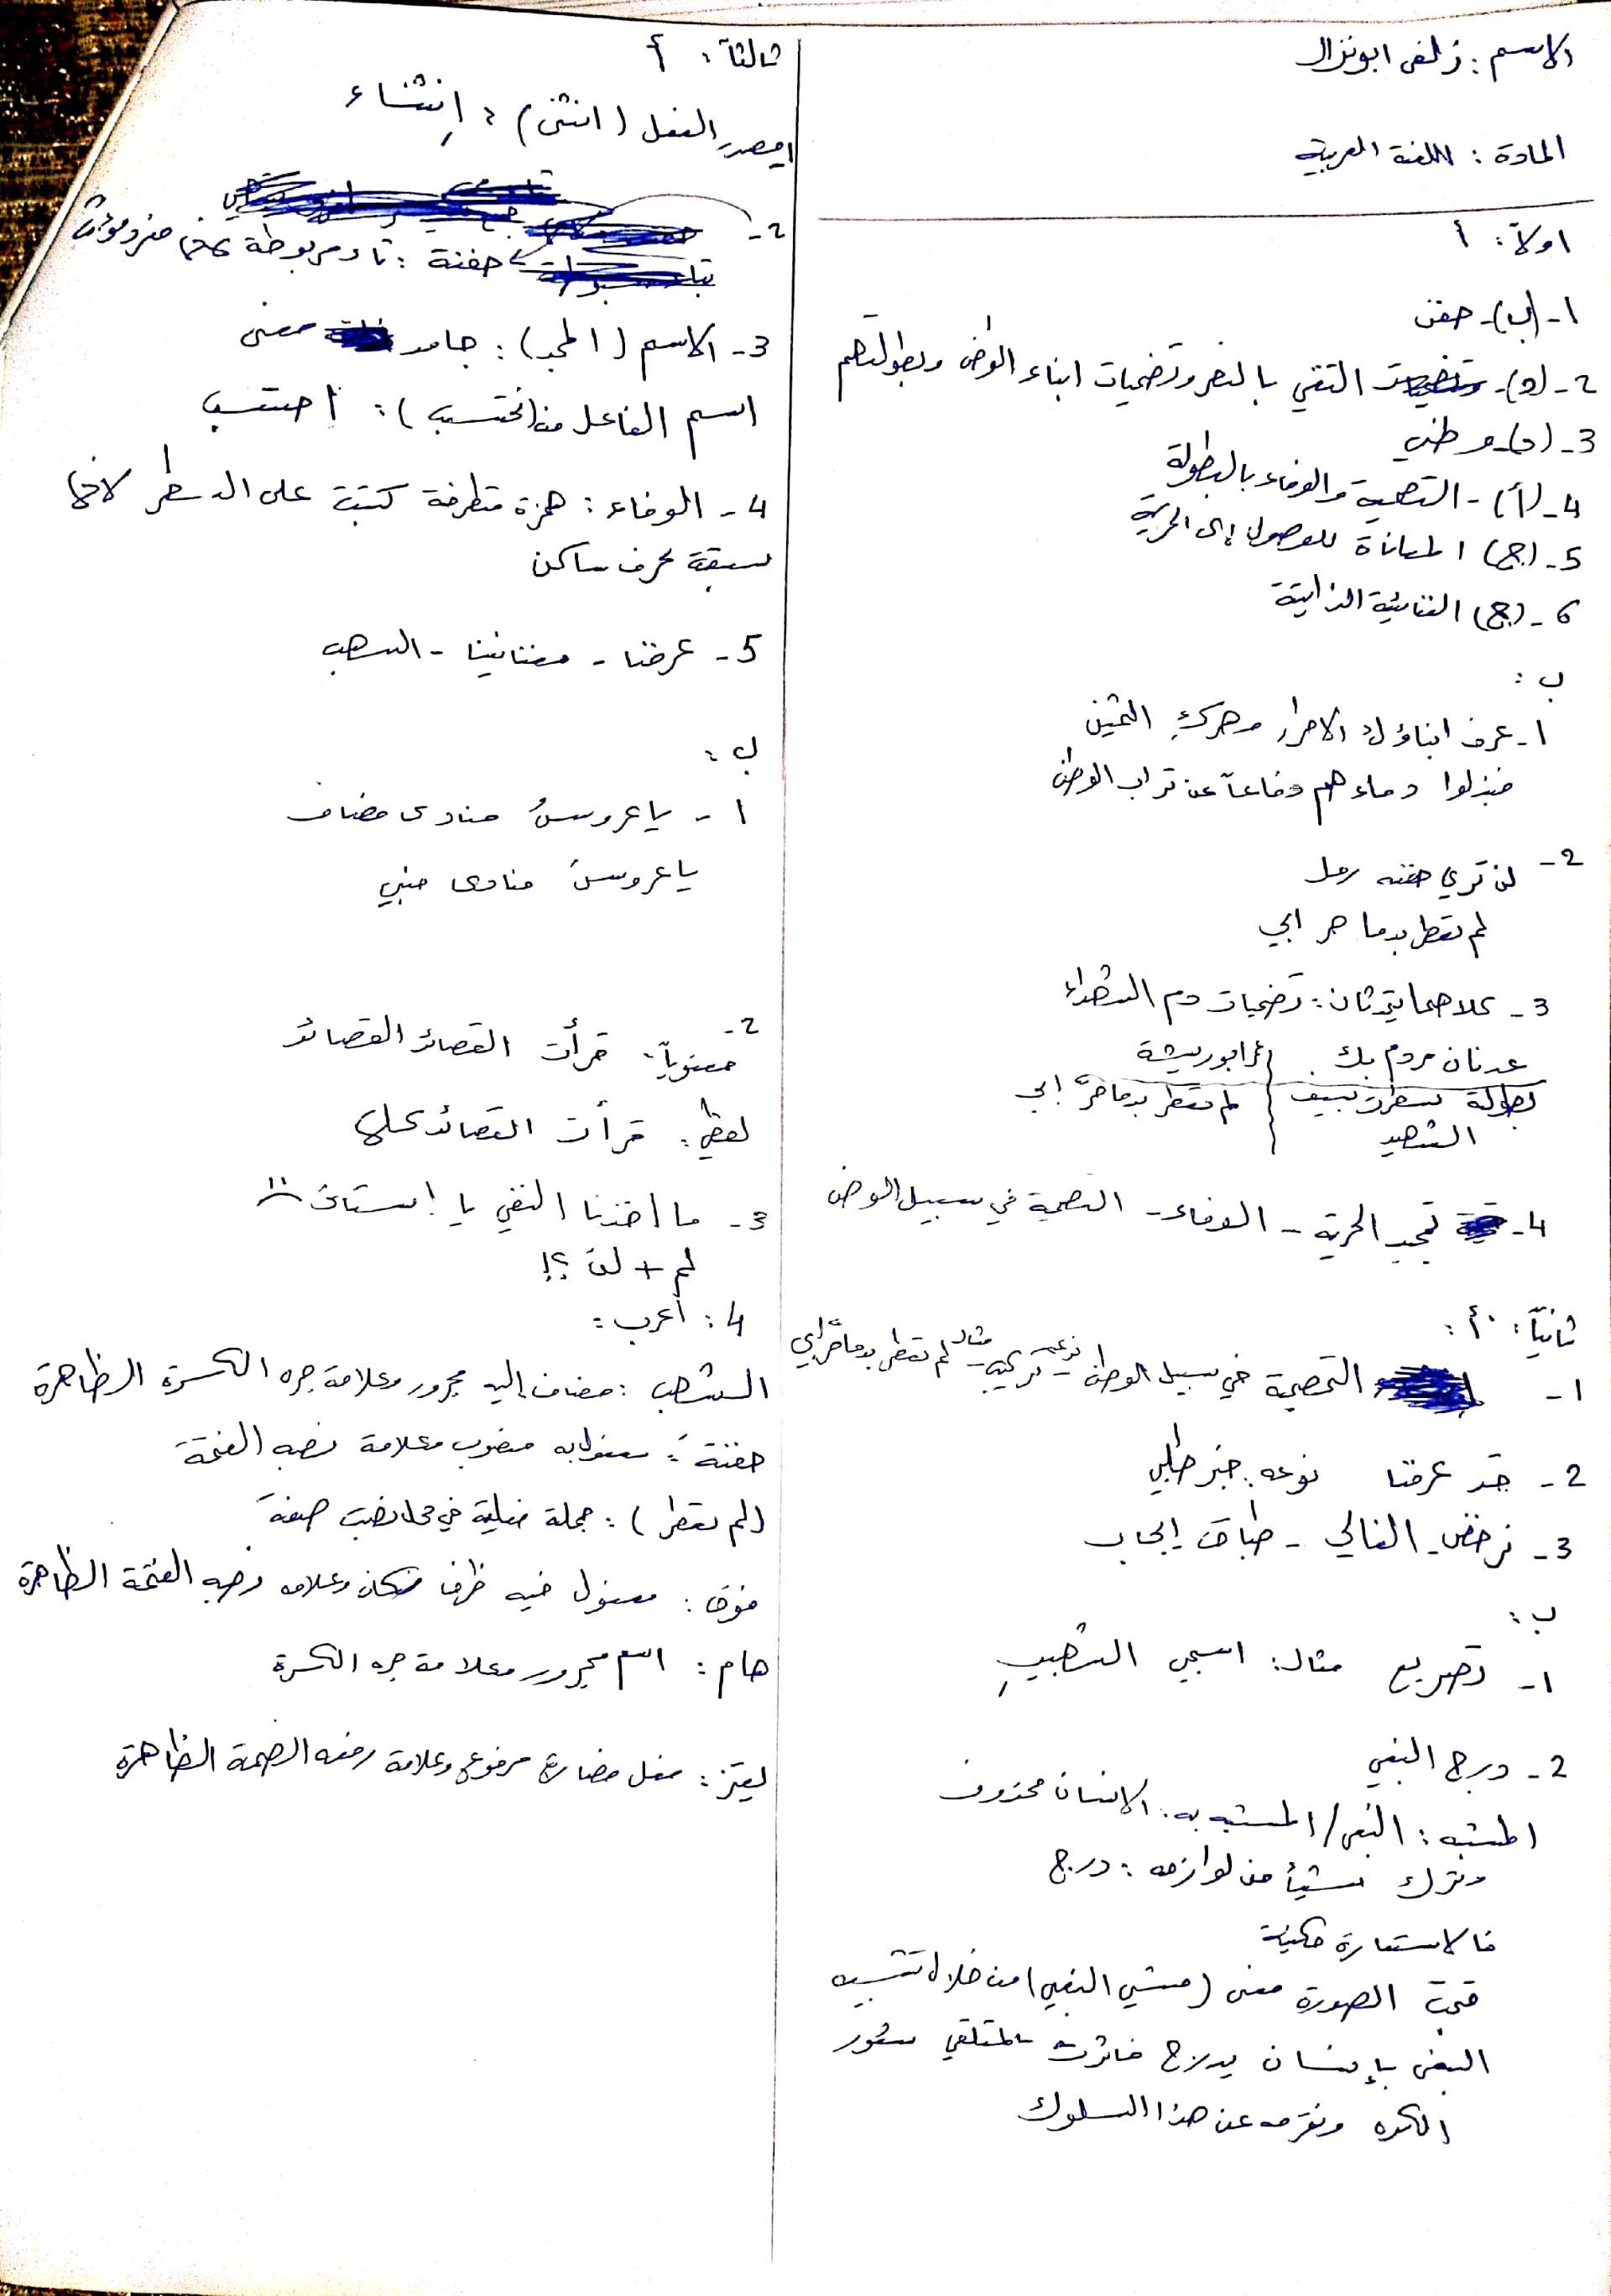 الاسم : زلفى ابونزال
المادة : اللغة العربية
اولاً : أ
1- (ب)- حفن
2- (د)- التغني بالنصر وتضحيات ابناء الوطن وبطولتهم
3- (د)- وطني
4- (أ)- التضحية والوفاء بالبطولة
5- (ج) المعاناة للوصول إلى الحرية
6- (ج) الغنائية الذاتية
ب :
1- عرف ابناؤك الاحرار مهرك الثمين
فبذلوا دماءهم دفاعاً عن تراب الوطن
2- لن تري حفنه رمل
لم تعطر بدما حر ابي
3- كلاهما يتحدثان : تضحيات دم الشهداء
عدنان مردم بك. | عمر ابو ريشة
بطولة سطرت بسيف | لم تعطر بدما حرّ ابي
الشهيد
4- تمجيد الحرية - الوفاء - التضحية في سبيل الوطن
ثانياً : أ :
1- التضحية في سبيل الوطن نوعه تركيب مثال لم تعطر بدما حرّ ابي
2- قد عرفنا نوعه : خبر طلبي
3- نرخص - الغالي - طباق إيجاب
ب :
1- تصريع مثال : اسحبي الشهبِ
2- درج البغي
المشبه : البغي / المشبه به : الانسان محذوف
وترك شيئاً من لوازمه : درج
فالاستعارة مكنية
قبحت الصورة معنى (مشي البغي) من خلال تشبيه
البغي بإنسان يدرج فاثرت بالمتلقي شعور
الكره ونفرته عن هذا السلوك
ثالثاً : أ
1 مصدر الفعل (انثنى) : إنثناء
2- حفنة : تاء مربوطة لانها مفرد مؤنث
3- الاسم (المجد) : جامد معنى
اسم الفاعل من (نحتسب) : احتسب
4- الوفاء : همزة متطرفة كتبت على السطر لانها
سبقة بحرف ساكن
5- عرضنا - مغنانينا - الشهب
ب :
1- يا عروسُ منادى مضاف
يا عروسُ منادى مبني
2- معنوياً : قرأت القصائد القصائد
لفظي : قرأت القصائد كلها
3- ما اخذنا النفي يا استاذ
لم + لن ؟!
4 : أعرب :
الشهب : مضاف إليه مجرور وعلامة جره الكسرة الظاهرة
حفنةً : مفعول به منصوب وعلامة نصبه الفتحة
(لم تعطر) : جملة فعلية في محل نصب صفة
فوق : مفعول فيه ظرف مكان وعلامه نصبه الفتحة الظاهرة
هام : اسم مجرور وعلامة جره الكسرة
يعتز : فعل مضارع مرفوع وعلامة رفعه الضمة الظاهرة